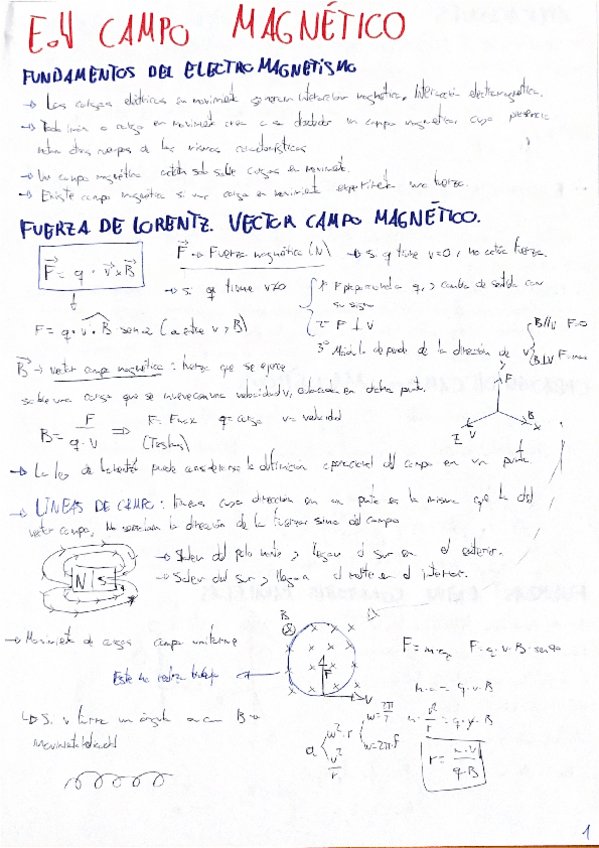 E.4 CAMPO MAGNÉTICO
FUNDAMENTOS DEL ELECTROMAGNETISMO
→ Las cargas eléctricas en movimiento generan interacción magnética, Interacción electromagnética.
→ Toda o carga en movimiento crea a su alrededor un campo magnético, cuya presencia
otros cuerpos de las mismas características
→ Un campo magnético actúa solo sobre cargas en movimiento.
→ Existe campo magnético si una carga en movimiento experimenta una fuerza.
FUERZA DE LORENTZ. VECTOR CAMPO MAGNÉTICO.
F = q · v x B
F → Fuerza magnética (N) → si q tiene v=0, no actúa fuerza.
→ si q tiene v≠0
1º F proporcional a q, y cambia de sentido con
su signo
2º F ⊥ V
F = q · v · B senα (α entre v y B)
3º Módulo depende de la dirección de v
B//v F=0
B⊥v F=max
B → vector campo magnético: fuerza que se ejerce
sobre una carga que se mueve con una velocidad v, en dicho punto.
F
B
X
I V
B = F / q · v ⇒ F = Fmax q = carga v = velocidad
(Teslas)
→ La ley de Lorentz puede considerarse la definición operacional del campo en un punto
→ LÍNEAS DE CAMPO: líneas cuya dirección en un punto es la misma que la del
vector campo, No señalan la dirección de la fuerza sino del campo
N | S
→ Salen del polo norte y llegan al sur en el exterior.
→ Salen del sur y llegan al norte en el interior.
→ Movimiento de cargas campo uniforme
B
F
V
F = m·a F = q · v · B · senα
Este no realiza trabajo
m · a = q · v · B
m · v² / r = q · v · B
r = m · v / q · B
a w² · r
v² / r
w = 2π / T
w = 2π · f
↳ Si v forma un ángulo α con B →
Movimiento helicoidal
1